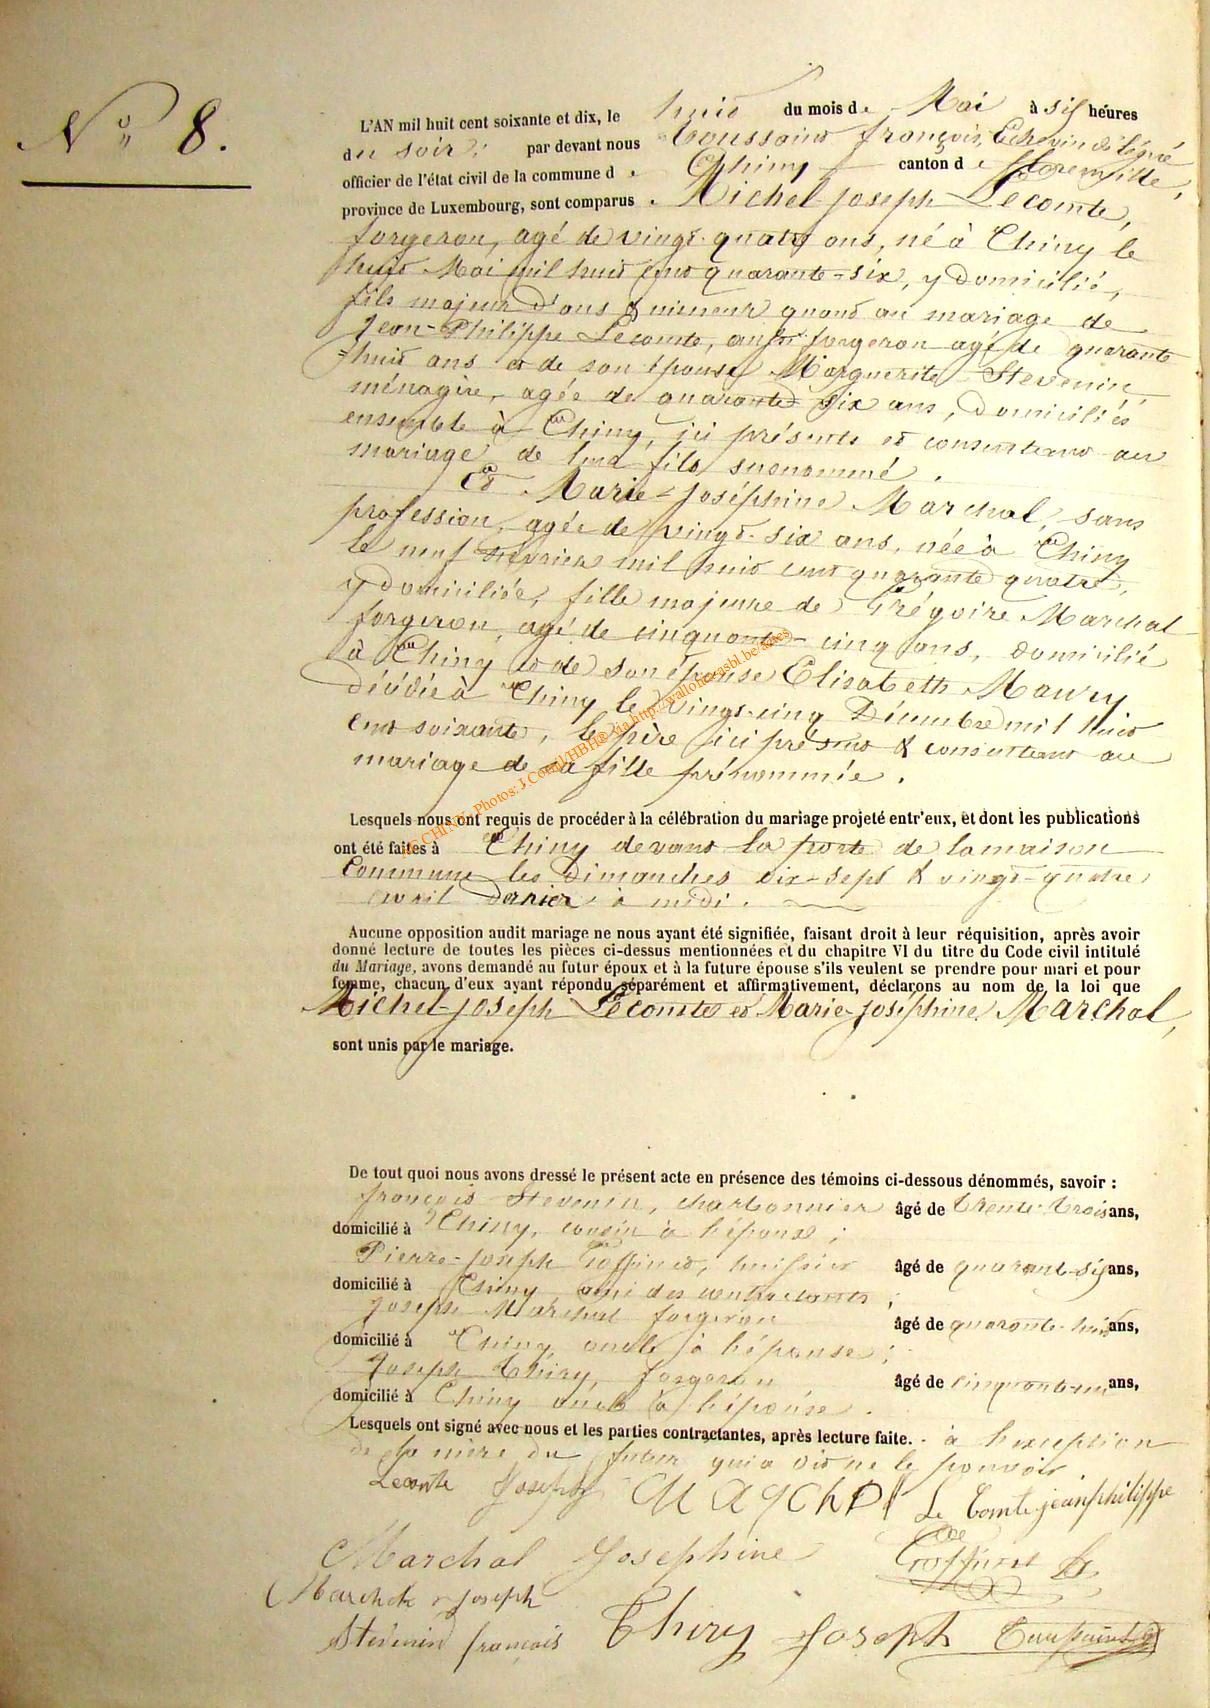 N° 8.
L'AN mil huit cent soixante et dix, le huit du mois de Mai à six heures
du soir, par devant nous Toussaint françois, Echevin délégué
officier de l'état civil de la commune d Chiny canton de florenville,
province de Luxembourg, sont comparus Michel-Joseph Lecomte,
forgeron, agé de vingt-quatre ans, né à Chiny le
huit Mai mil huit cent quarante-six, y domicilié,
fils majeur d'ans & mineur quand au mariage de
Jean-Philippe Lecomte, aussi forgeron agé de quarante
=huit ans et de son épouse Marguerite Stevenin,
ménagère, agée de quarante six ans, domiciliés
ensemble à Chiny, ici présents et consentant au
mariage de leur fils susnommé.
Et Marie-Joséphine Marchal, sans
profession, agée de vingt-six ans, née à Chiny
le neuf février mil huit cent quarante quatre,
y domiciliée, fille majeure de Grégoire Marchal
forgeron, agé de cinquante-cinq ans, domicilié
à Chiny et de son épouse Elisabeth Maury
décédée à Chiny le vingt-cinq Décembre mil huit
cent soixante, le père ici présent & consentant au
mariage de sa fille prénommée.
de CHINY- Photos: J.Collin/HBH© via http://wallonica.asbl.be/actes
Lesquels nous ont requis de procéder à la célébration du mariage projeté entr'eux, et dont les publications
ont été faites à Chiny devant la porte de la maison
Commune les Dimanches dix-sept & vingt-quatre
avril dernier à midi.
Aucune opposition audit mariage ne nous ayant été signifiée, faisant droit à leur réquisition, après avoir
donné lecture de toutes les pièces ci-dessus mentionnées et du chapitre VI du titre du Code civil intitulé
du Mariage, avons demandé au futur époux et à la future épouse s'ils veulent se prendre pour mari et pour
femme, chacun d'eux ayant répondu séparément et affirmativement, déclarons au nom de la loi que
Michel-Joseph Lecomte et Marie-Joséphine Marchal,
sont unis par le mariage.
De tout quoi nous avons dressé le présent acte en présence des témoins ci-dessous dénommés, savoir :
françois Stevenin, charbonnier âgé de trente-trois ans,
domicilié à Chiny, cousin à l'épouse;
Pierre-Joseph Goffinet, huissier âgé de quarante-six ans,
domicilié à Chiny, ami des contractants;
Joseph Marchal forgeron âgé de quarante-huit ans,
domicilié à Chiny, oncle à l'épouse;
Joseph Thiry, forgeron âgé de ans,
domicilié à Chiny oncle à l'épouse.
Lesquels ont signé avec nous et les parties contractantes, après lecture faite. - à l'exception
de la mère du futur qui a dit ne le pouvoir
Lecomte Joseph MARChAl Le Comte jeanphilippe
Marchal Josephine Goffinet
Marchal Joseph
Stevenin françois Thiry Joseph Toussaint